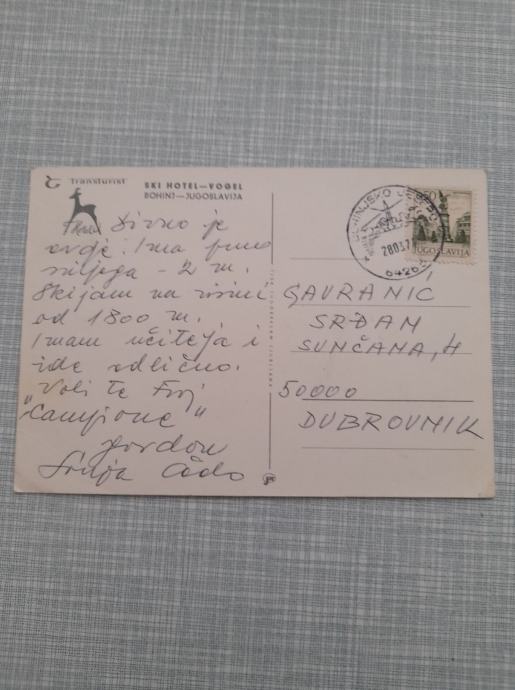 Transturist
SKI HOTEL—VOGEL
BOHINJ—JUGOSLAVIJA
Divno je
ovdje. Ima puno
snijega - 2 m.
Skijam na visini
od 1800 m.
Imam učitelja i
ide odlično.
Voli Te Tvoj
"Campione"
Gordon
BOHINJSKO JEZERO
28037
64265
50
JUGOSLAVIJA
GAVRANIC
SRĐAN
SUNČANA, 4
50000
DUBROVNIK